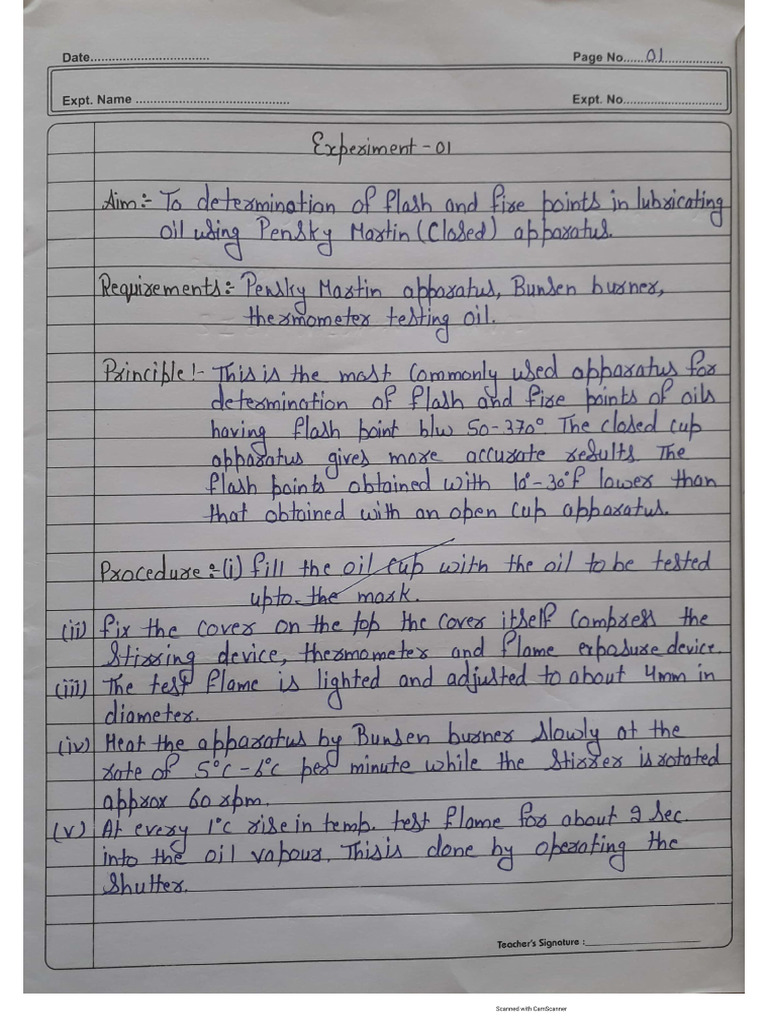 Date................................ Page No......01................
Expt. Name ......................................... Expt. No...........................
Experiment-01
Aim:- To determination of flash and fire points in lubricating
oil using Pensky Martin (Closed) apparatus.
Requirements:- Pensky Martin apparatus, Bunsen burner,
thermometer testing oil.
Principle!- This is the most commonly used apparatus for
determination of flash and fire points of oils
having flash point b/w 50-370° The closed cup
apparatus gives more accurate results. The
flash points obtained with 10°-30°F lower than
that obtained with an open cup apparatus.
Procedure:- (i) fill the oil cup with the oil to be tested
upto the mark.
(ii) fix the cover on the top the cover itself compress the
stirring device, thermometer and flame exposure device.
(iii) The test flame is lighted and adjusted to about 4mm in
diameter.
(iv) Heat the apparatus by Bunsen burner slowly at the
rate of 5°C-6°C per minute while the stirrer is rotated
approx 60 rpm.
(v) At every 1°C rise in temb. test flame for about 2 sec.
into the oil vapour. This is done by operating the
shutter.
Teacher's Signature :_______________________
Scanned with CamScanner